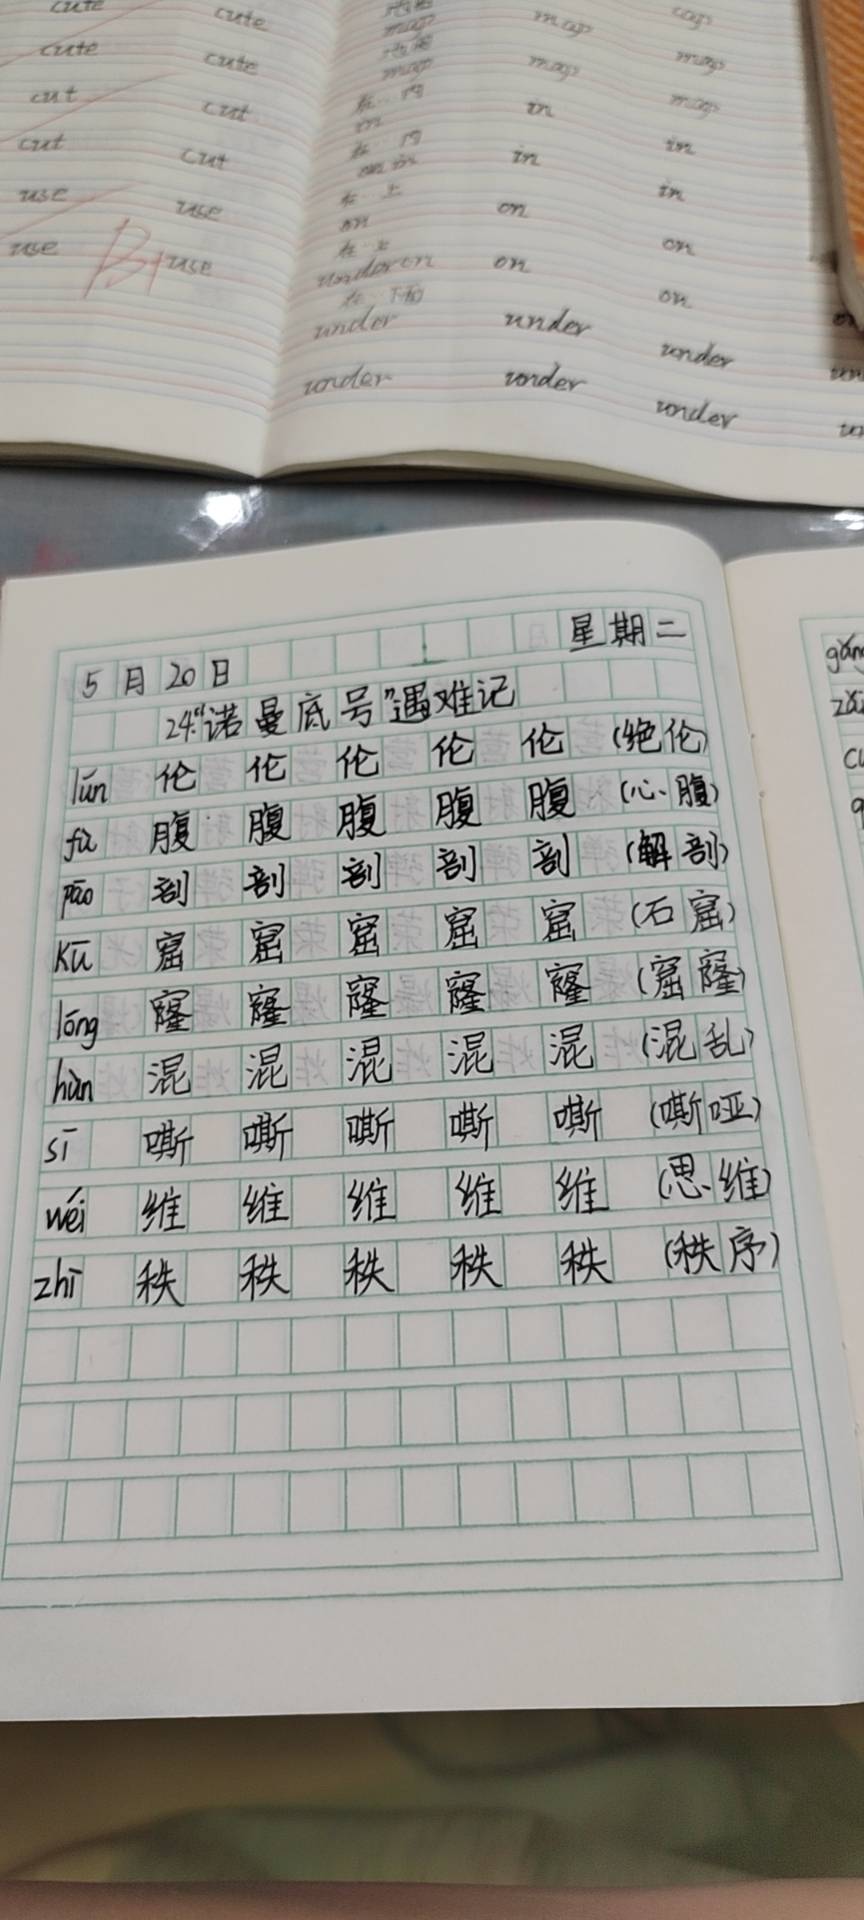 cute cute map map cap
cute cute map map map
cut cut in in map
cut cut in in
use use on on in
use B+ use on on on
under under under
under under under
5月20日 星期二
24."诺曼底号"遇难记
lún 伦 伦 伦 伦 伦 (绝伦)
fù 腹 腹 腹 腹 腹 (心腹)
pāo 剖 剖 剖 剖 剖 (解剖)
Kū 窟 窟 窟 窟 窟 (石窟)
lóng 窿 窿 窿 窿 窿 (窟窿)
hùn 混 混 混 混 混 (混乱)
sī 嘶 嘶 嘶 嘶 嘶 (嘶哑)
wéi 维 维 维 维 维 (思维)
zhī 秩 秩 秩 秩 秩 (秩序)